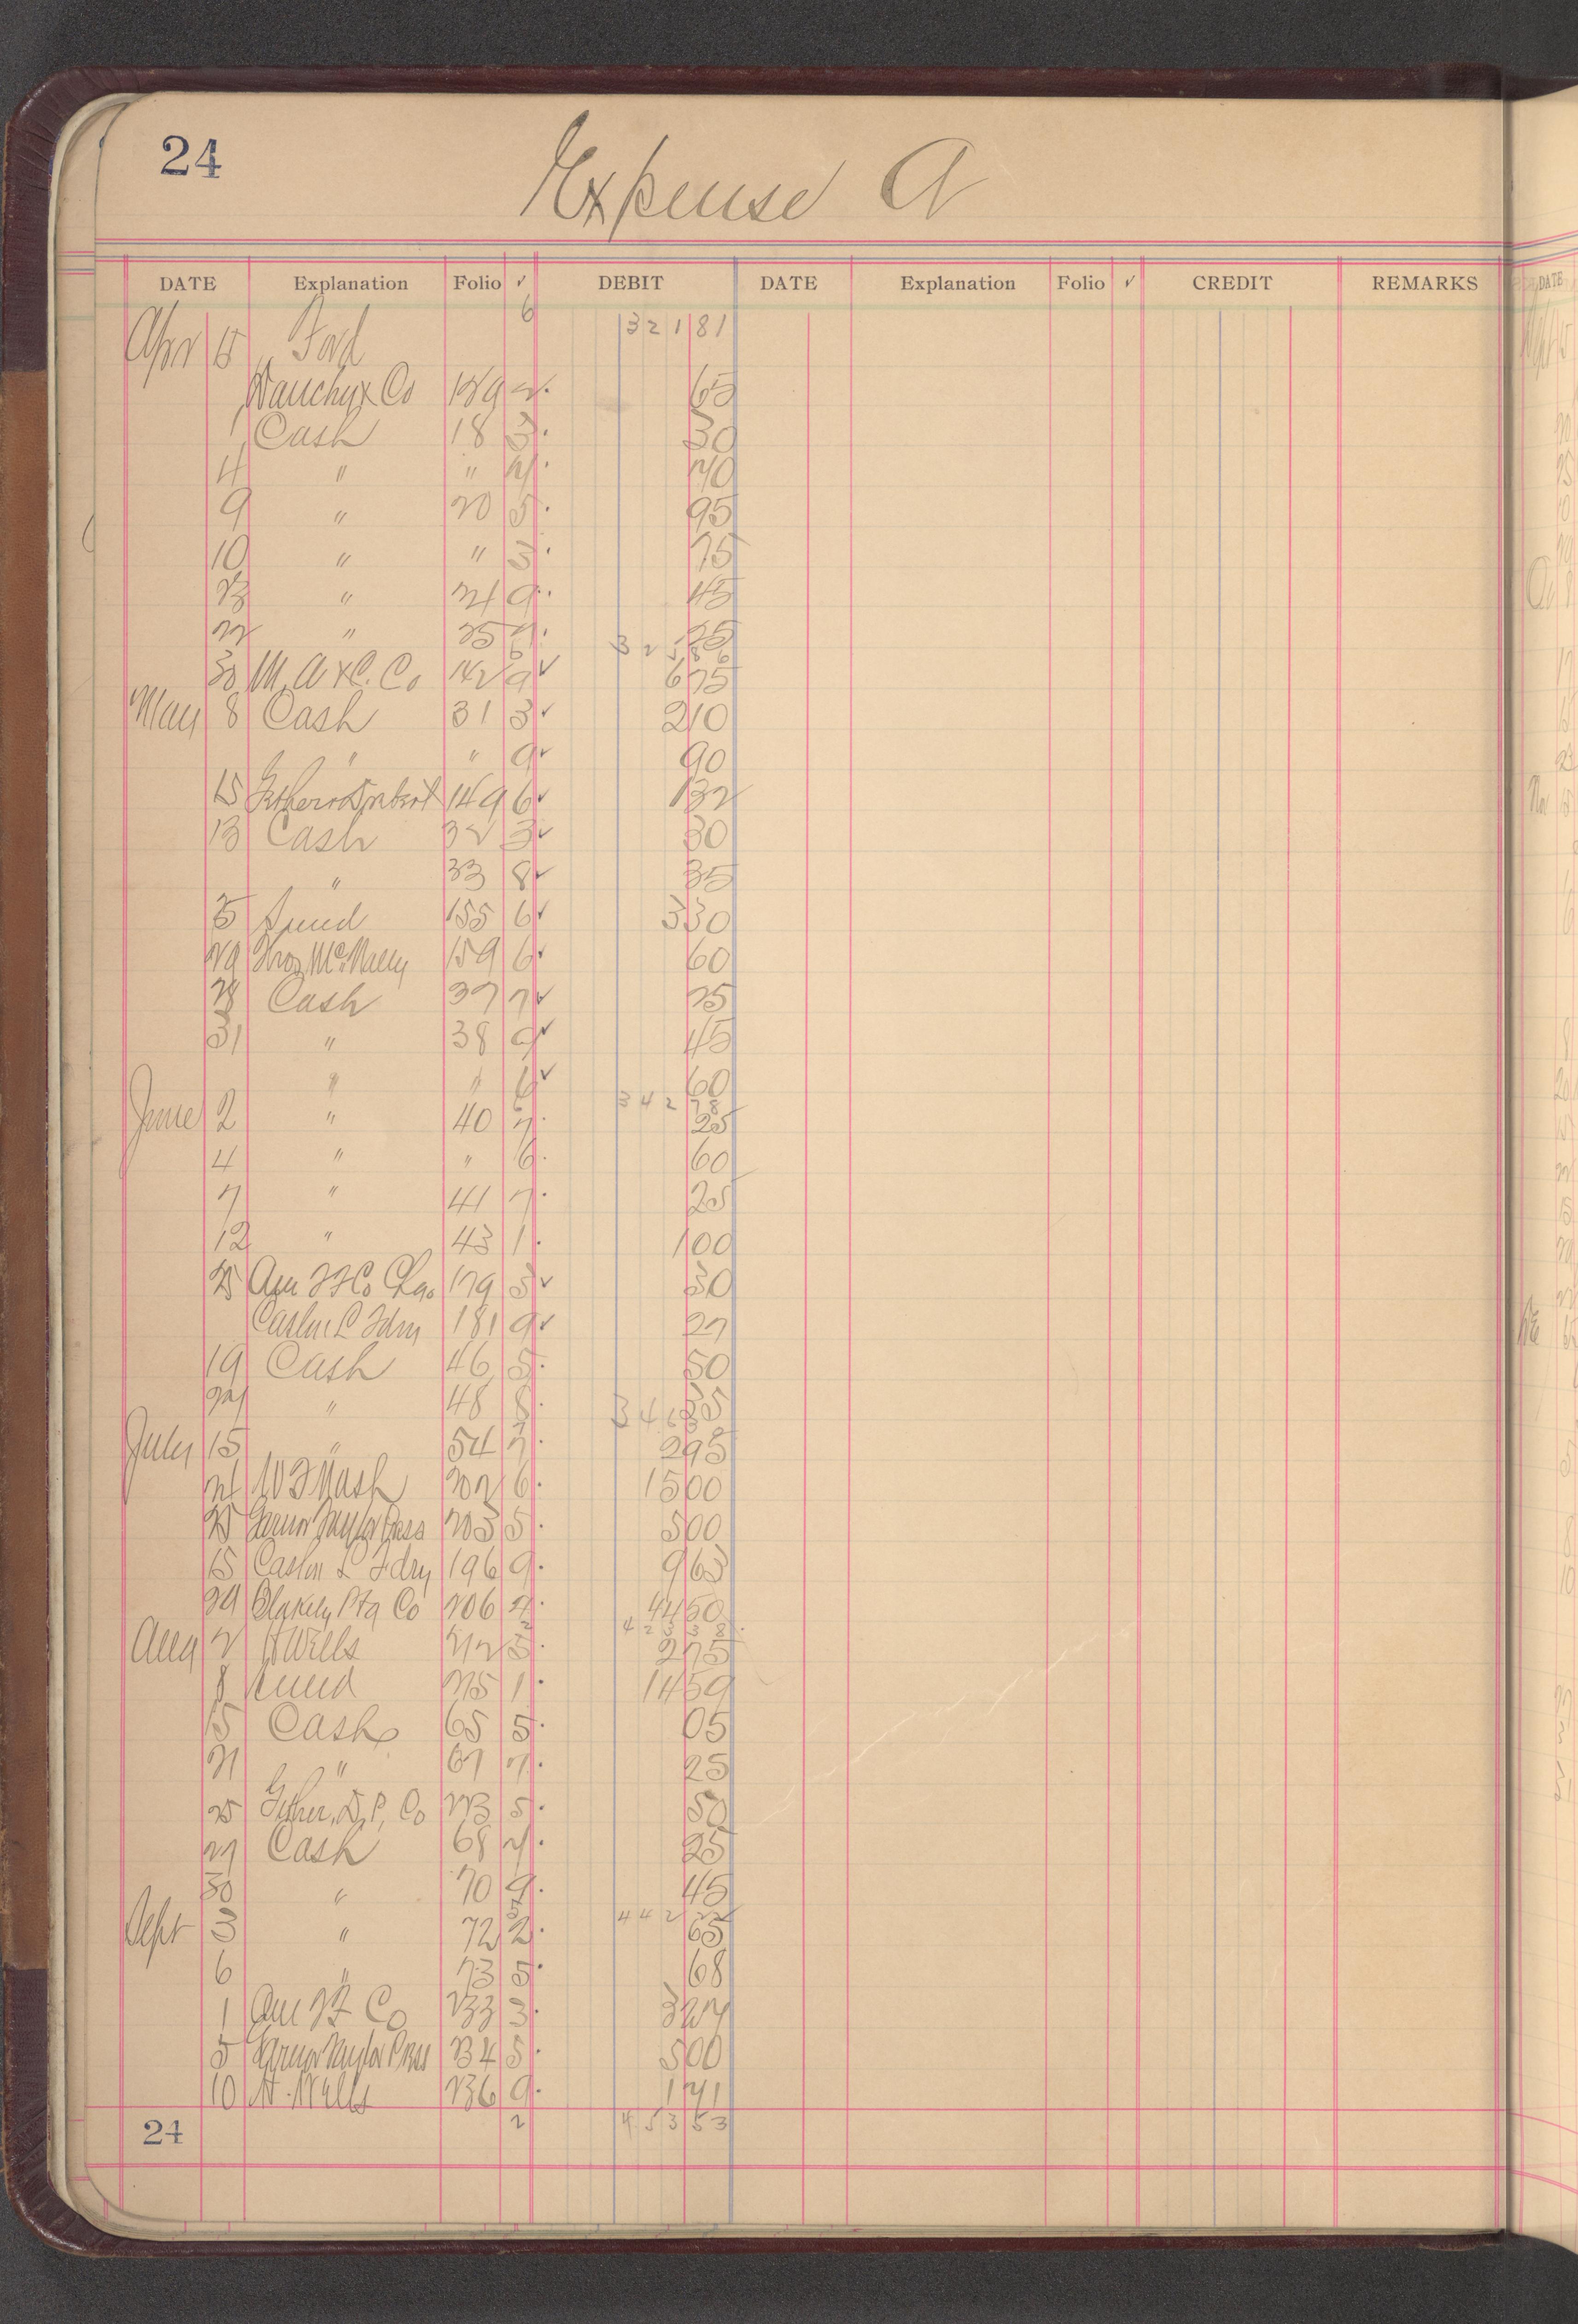 24
Expense A
DATE Explanation Folio ✓ DEBIT DATE Explanation Folio ✓ CREDIT REMARKS
Apr 15 Ford 6 321 81
& Co 189 2. 65
1 Cash 18 3. 30
4 " " 4. 40
9 " 20 5. 95
10 " " 3. 75
23 " 24 9. 45
22 " 25 7. 25
325 56
30 M. A & C. Co 142 9✓ 6 75
May 8 Cash 31 3✓ 2 10
" " 9✓ 90
15 149 6✓ 1 32
13 Cash 32 3✓ 30
" 33 8✓ 35
5 155 6✓ 3 30
29 Thos McNally 159 6✓ 60
28 Cash 37 7✓ 75
31 " 38 9✓ 45
" " 6✓ 60
342 78
June 2 " 40 7. 25
4 " " 6. 60
7 " 41 7. 25
12 " 43 1. 1 00
25 Am T F Co Chgo 179 3✓ 30
Caslon L Fdry 181 9✓ 27
19 Cash 46 5. 50
24 " 48 8. 35
346
July 15 " 54 7. 2 95
24 W F Nash 202 6. 15 00
25 Taylor Press 203 5. 5 00
15 Caslon L Fdry 196 9. 9 63
29 Blakely Ptg Co 206 4. 44 50
423 38
Aug 2 H Wills 212 3. 2 75
8 215 1. 14 59
15 Cash 65 5. 05
21 " 67 7. 25
25 Gether, D, P, Co 223 5. 50
27 Cash 68 4. 25
30 " 70 9. 45
442 22
Sept 3 " 72 2. 65
6 " 73 5. 68
1 Am T F Co 233 3. 3 27
5 Taylor Press 234 5. 5 00
10 H. Wills 236 9. 1 71
24 2 453 53